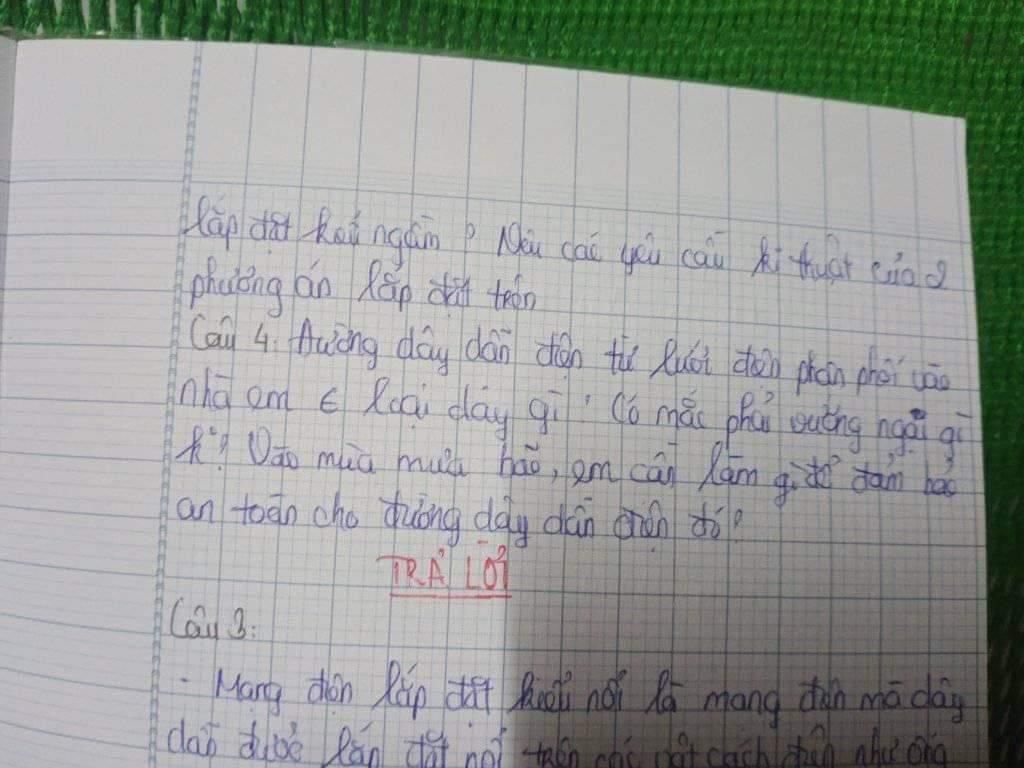 lắp đặt kiểu ngầm? Nêu các yêu cầu kĩ thuật của 2
phương án lắp đặt trên
Câu 4. Đường dây dẫn điện từ lưới điện phân phối vào
nhà em ∈ loại dây gì? Có mắc phải vướng ngại gì
k°? Vào mùa mưa bão, em cần làm gì để đảm bảo
an toàn cho đường dây dẫn điện đó?
TRẢ LỜI
Câu 3:
- Mạng điện lắp đặt kiểu nổi là mạng điện mà dây
dẫn được lắp đặt nổi trên các vật cách điện như ống